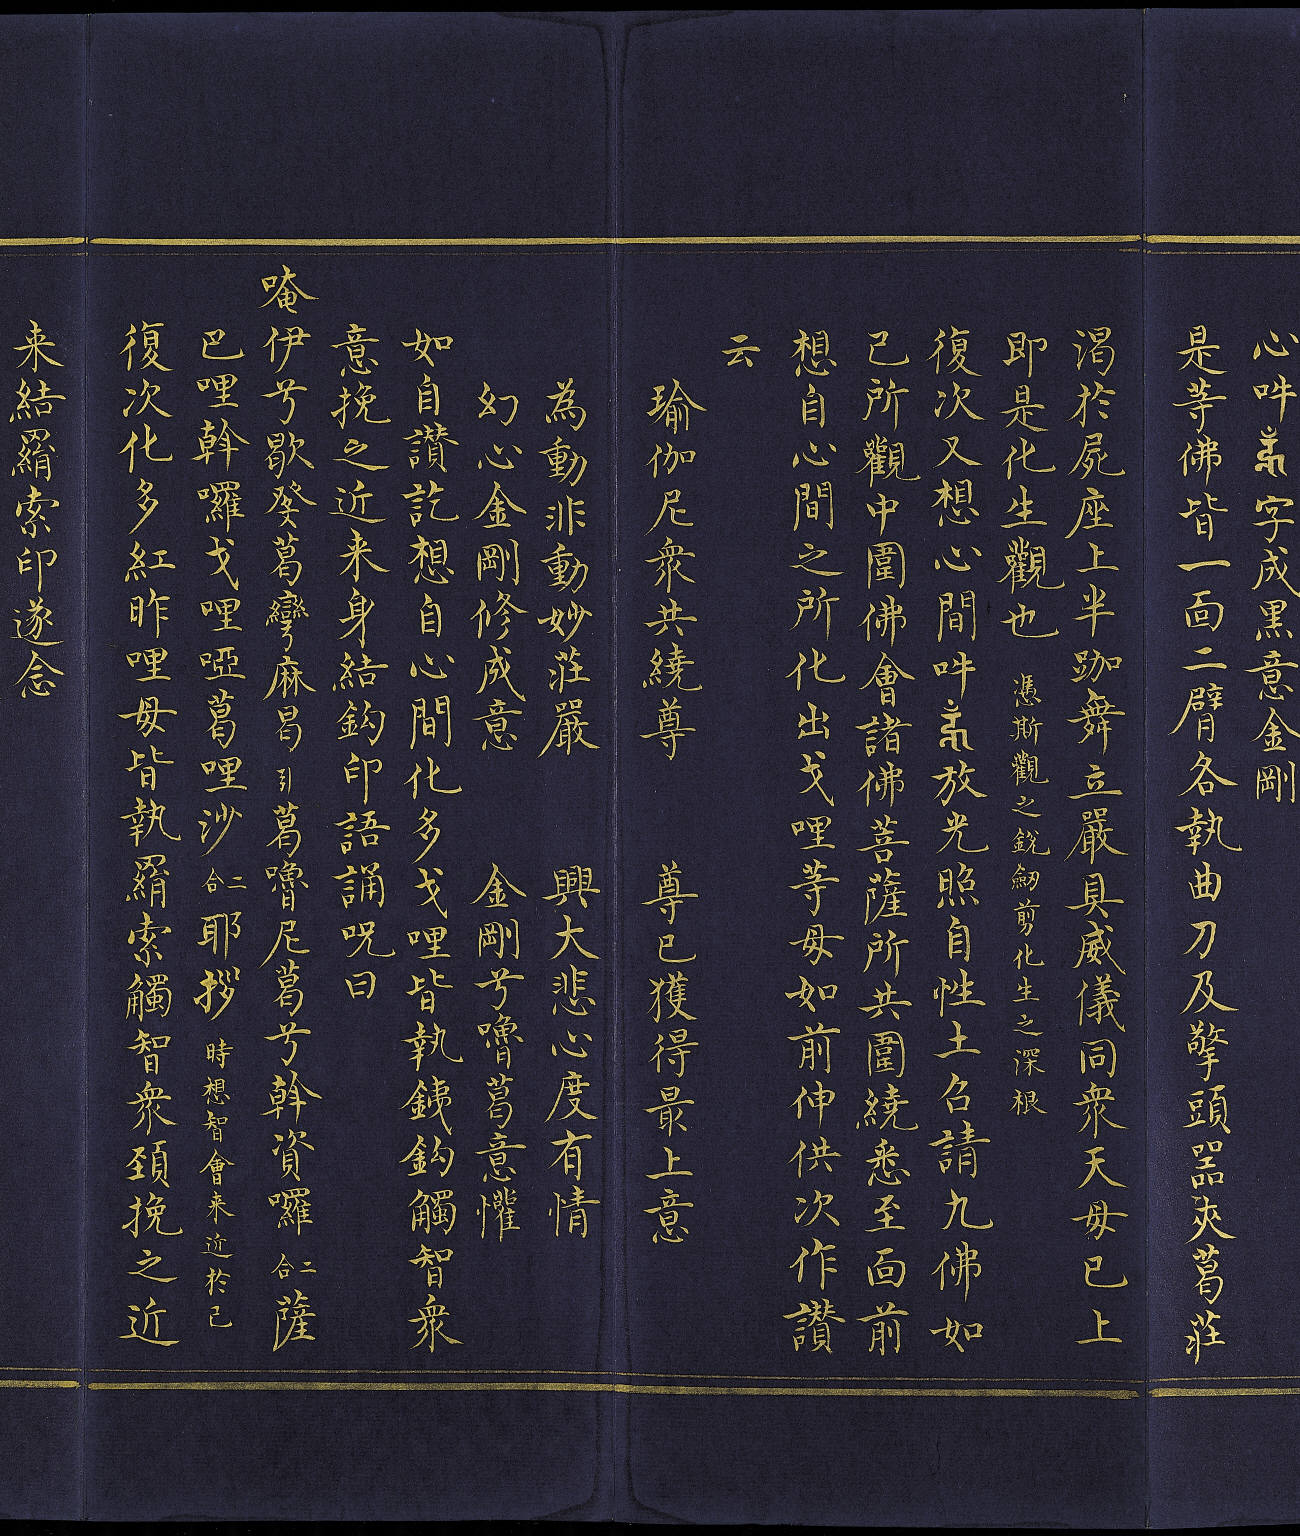 心吽𑖮𑖳𑖽字成黑意金剛
是等佛皆一面二臂各執曲刀及擎頭器夾葛莊
渴於屍座上半跏舞立嚴具威儀同衆天母已上
即是化生觀也 憑斯觀之銳劒剪化生之深根
復次又想心間吽放光照自性土召請九佛如
己所觀中圍佛會諸佛菩薩所共圍繞悉至面前
想自心間之所化出戈哩等母如前伸供次作讃
云
瑜伽尼衆共繞尊 尊已獲得最上意
為動非動妙莊嚴 興大悲心度有情
幻心金剛修成意 金剛兮嚕葛意懽
如自讃訖想自心間化多戈哩皆執銕鈎觸智衆
意挽之近来身結鈎印語誦呪曰
唵伊兮歇癹葛彎麻曷引葛嚕尼葛兮斡資囉二合薩
巴哩斡囉戈哩啞葛哩沙二合耶拶 時想智會来近於己
復次化多紅昨哩母皆執羂索觸智衆頚挽之近
来結羂索印遂念